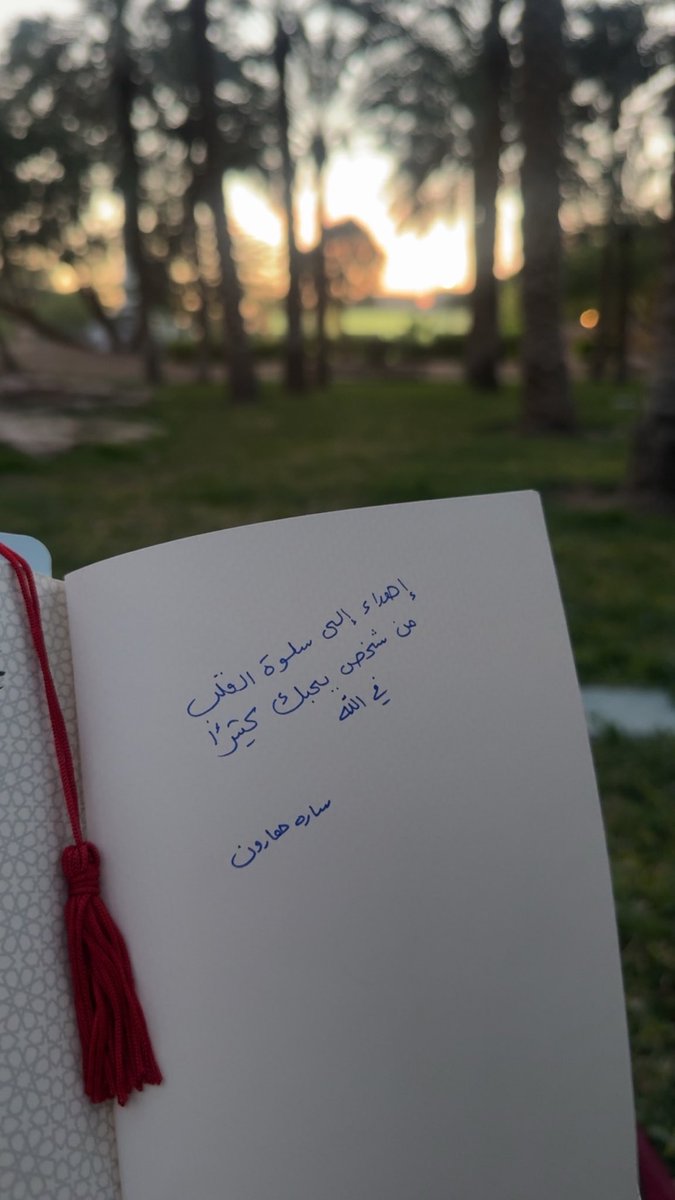 إهداء إلى سلوة القلب
من شخص يحبك كثيرًا
في الله
ساره هارون